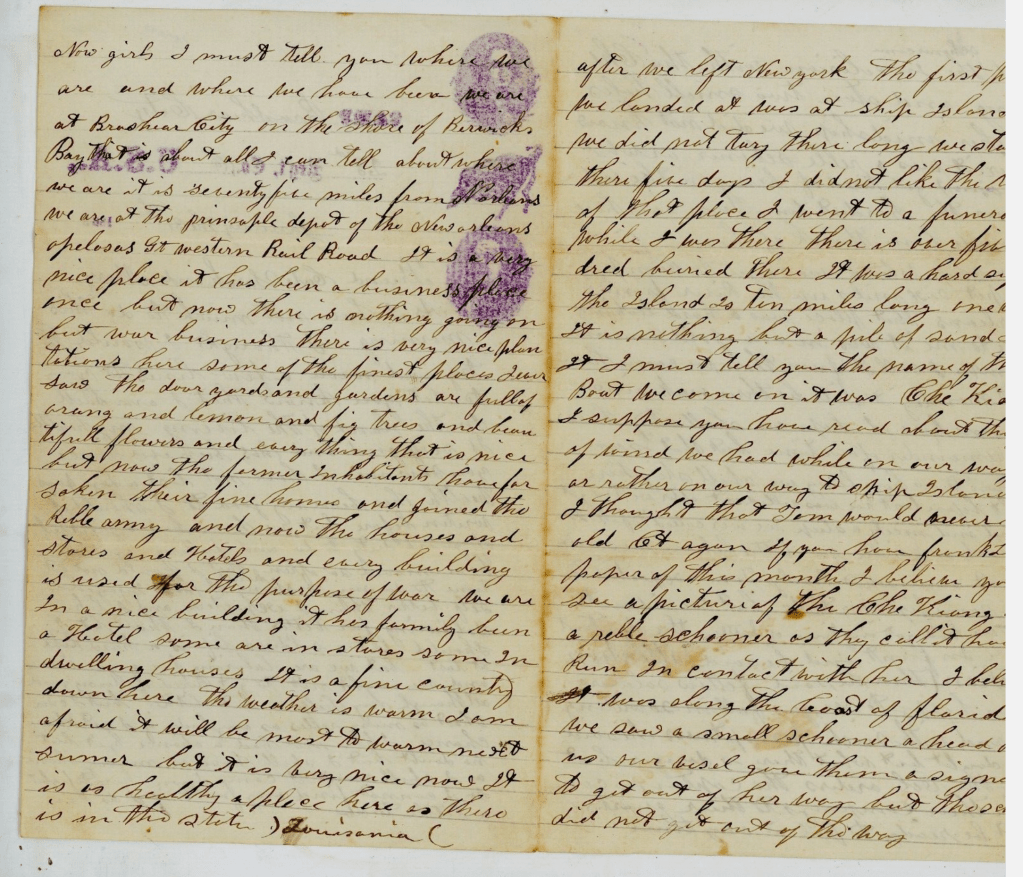 Now girls I must tell you where we
are and where we have been we are
at Brashear City on the shore of Berwicks
Bay that is about all I can tell about where
we are it is seventyfive miles from N Orleans
we are at the prinsaple depot of the New orleans
opelosas Gt western Rail Road It is a very
nice place it has been a business place
once but now there is nothing going on
but war business there is very nice plan
tations here some of the finest places I ever
saw the door yards and gardens are full of
orang and lemon and fig trees and beau
tifull flowers and every thing that is nice
but now the former Inhabitants have for
saken their fine homes and joined the
Reble army and now the houses and
stores and Hotels and every building
is used for the purpose of war we are
In a nice building it has formily been
a Hotel some are in stores some In
dwelling houses It is a fine country
down here the weather is warm I am
afraid it will be most to warm next
sumer but it is very nice now It
is as healthy a place here as there
is in the state ) Louisania (
after we left New york the first p
we landed at was at ship Island
we did not tary there long we sta
there five days I did not like the
of that place I went to a funera
while I was there there is over fiv
dred buried there It was a hard si
the Island Is ten miles long one
It is nothing but a pile of sand
It I must tell you the name of th
Boat we come on it was Che Kia
I suppose you have read about th
of wind we had while on our way
or rather on our way to ship Island
I thought that I am would never
old Ct again If you have frank L
paper of this month I believe yo
see a picture of the Che Kiang
a reble schooner as they call it ha
Run In contact with her I beli
It was along the Coast of florid
we saw a small schooner a head o
us our vesel gave them a signa
to get out of her way but the sc
did not get out of the way